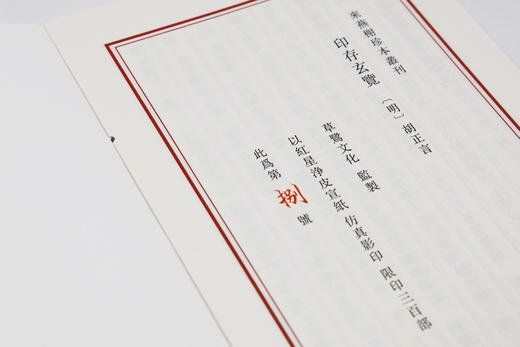 来燕榭珍本叢刊
印存玄覽
〔明〕胡正言
草鷺文化 監製
以紅星淨皮宣紙 仿真影印 限印三百部
此爲第捌號